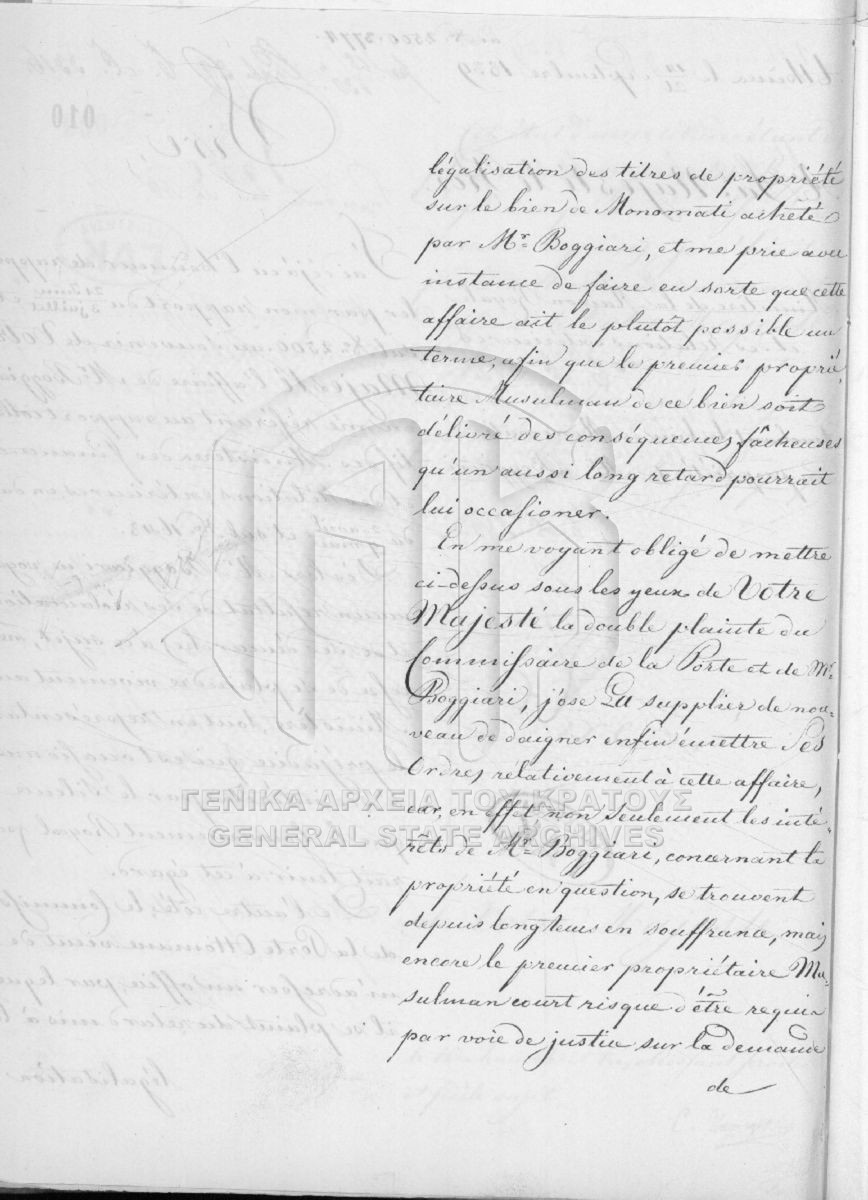 légalisation des titres de propriété
sur le bien de Monomati acheté
par Mr. Boggiari, et me prie avec
instance de faire en sorte que cette
affaire ait le plutôt possible un
terme, afin que le premier proprié-
taire Musulman de ce bien soit
délivré des conséquences fâcheuses
qu'un aussi long retard pourrait
lui occasioner.
En me voyant obligé de mettre
ci-dessus sous les yeux de Votre
Majesté la double plainte du
Commissaire de la Porte et de Mr.
Boggiari, j'ose La supplier de nou-
veau de daigner enfin émettre Ses
Ordres rélativement à cette affaire,
car, en effet non seulement les inté-
rêts de Mr. Boggiari, concernant la
propriété en question, se trouvent
depuis longtems en souffrance, mais
encore le premier propriétaire Mu-
sulman court risque d'être requis
par voie de justice sur la demande
de
ΓΕΝΙΚΑ ΑΡΧΕΙΑ ΤΟΥ ΚΡΑΤΟΥΣ
GENERAL STATE ARCHIVES